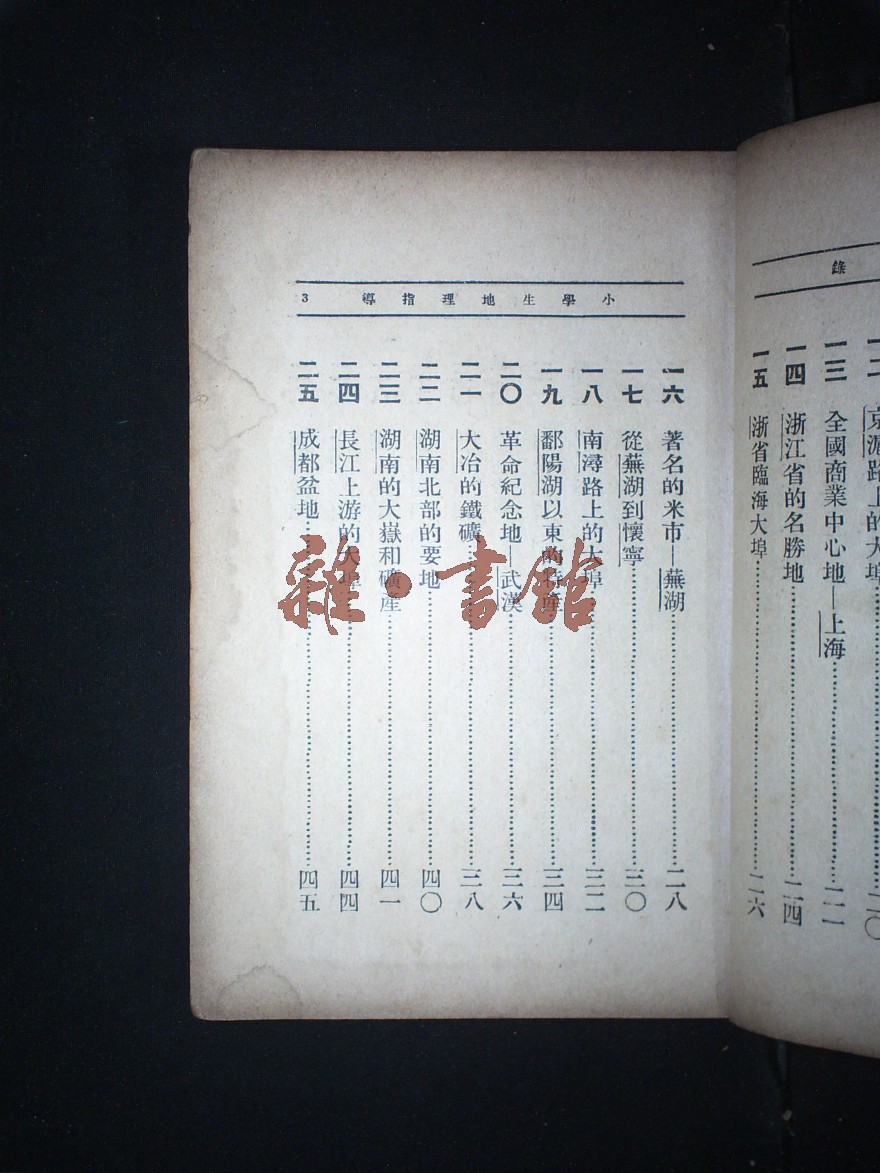 錄
一二 京滬路上的大埠……二〇
一三 全國商業中心地—上海……二二
一四 浙江省的名勝地……二四
一五 浙省臨海大埠……二六
小學生地理指導 3
一六 著名的米市—蕪湖……二八
一七 從蕪湖到懷寧……三〇
一八 南潯路上的大埠……三二
一九 鄱陽湖以東的特產……三四
二〇 革命紀念地—武漢……三六
二一 大冶的鐵礦……三八
二二 湖南北部的要地……四〇
二三 湖南的大嶽和礦產……四一
二四 長江上游的大埠……四四
二五 成都盆地……四五
雜·書館